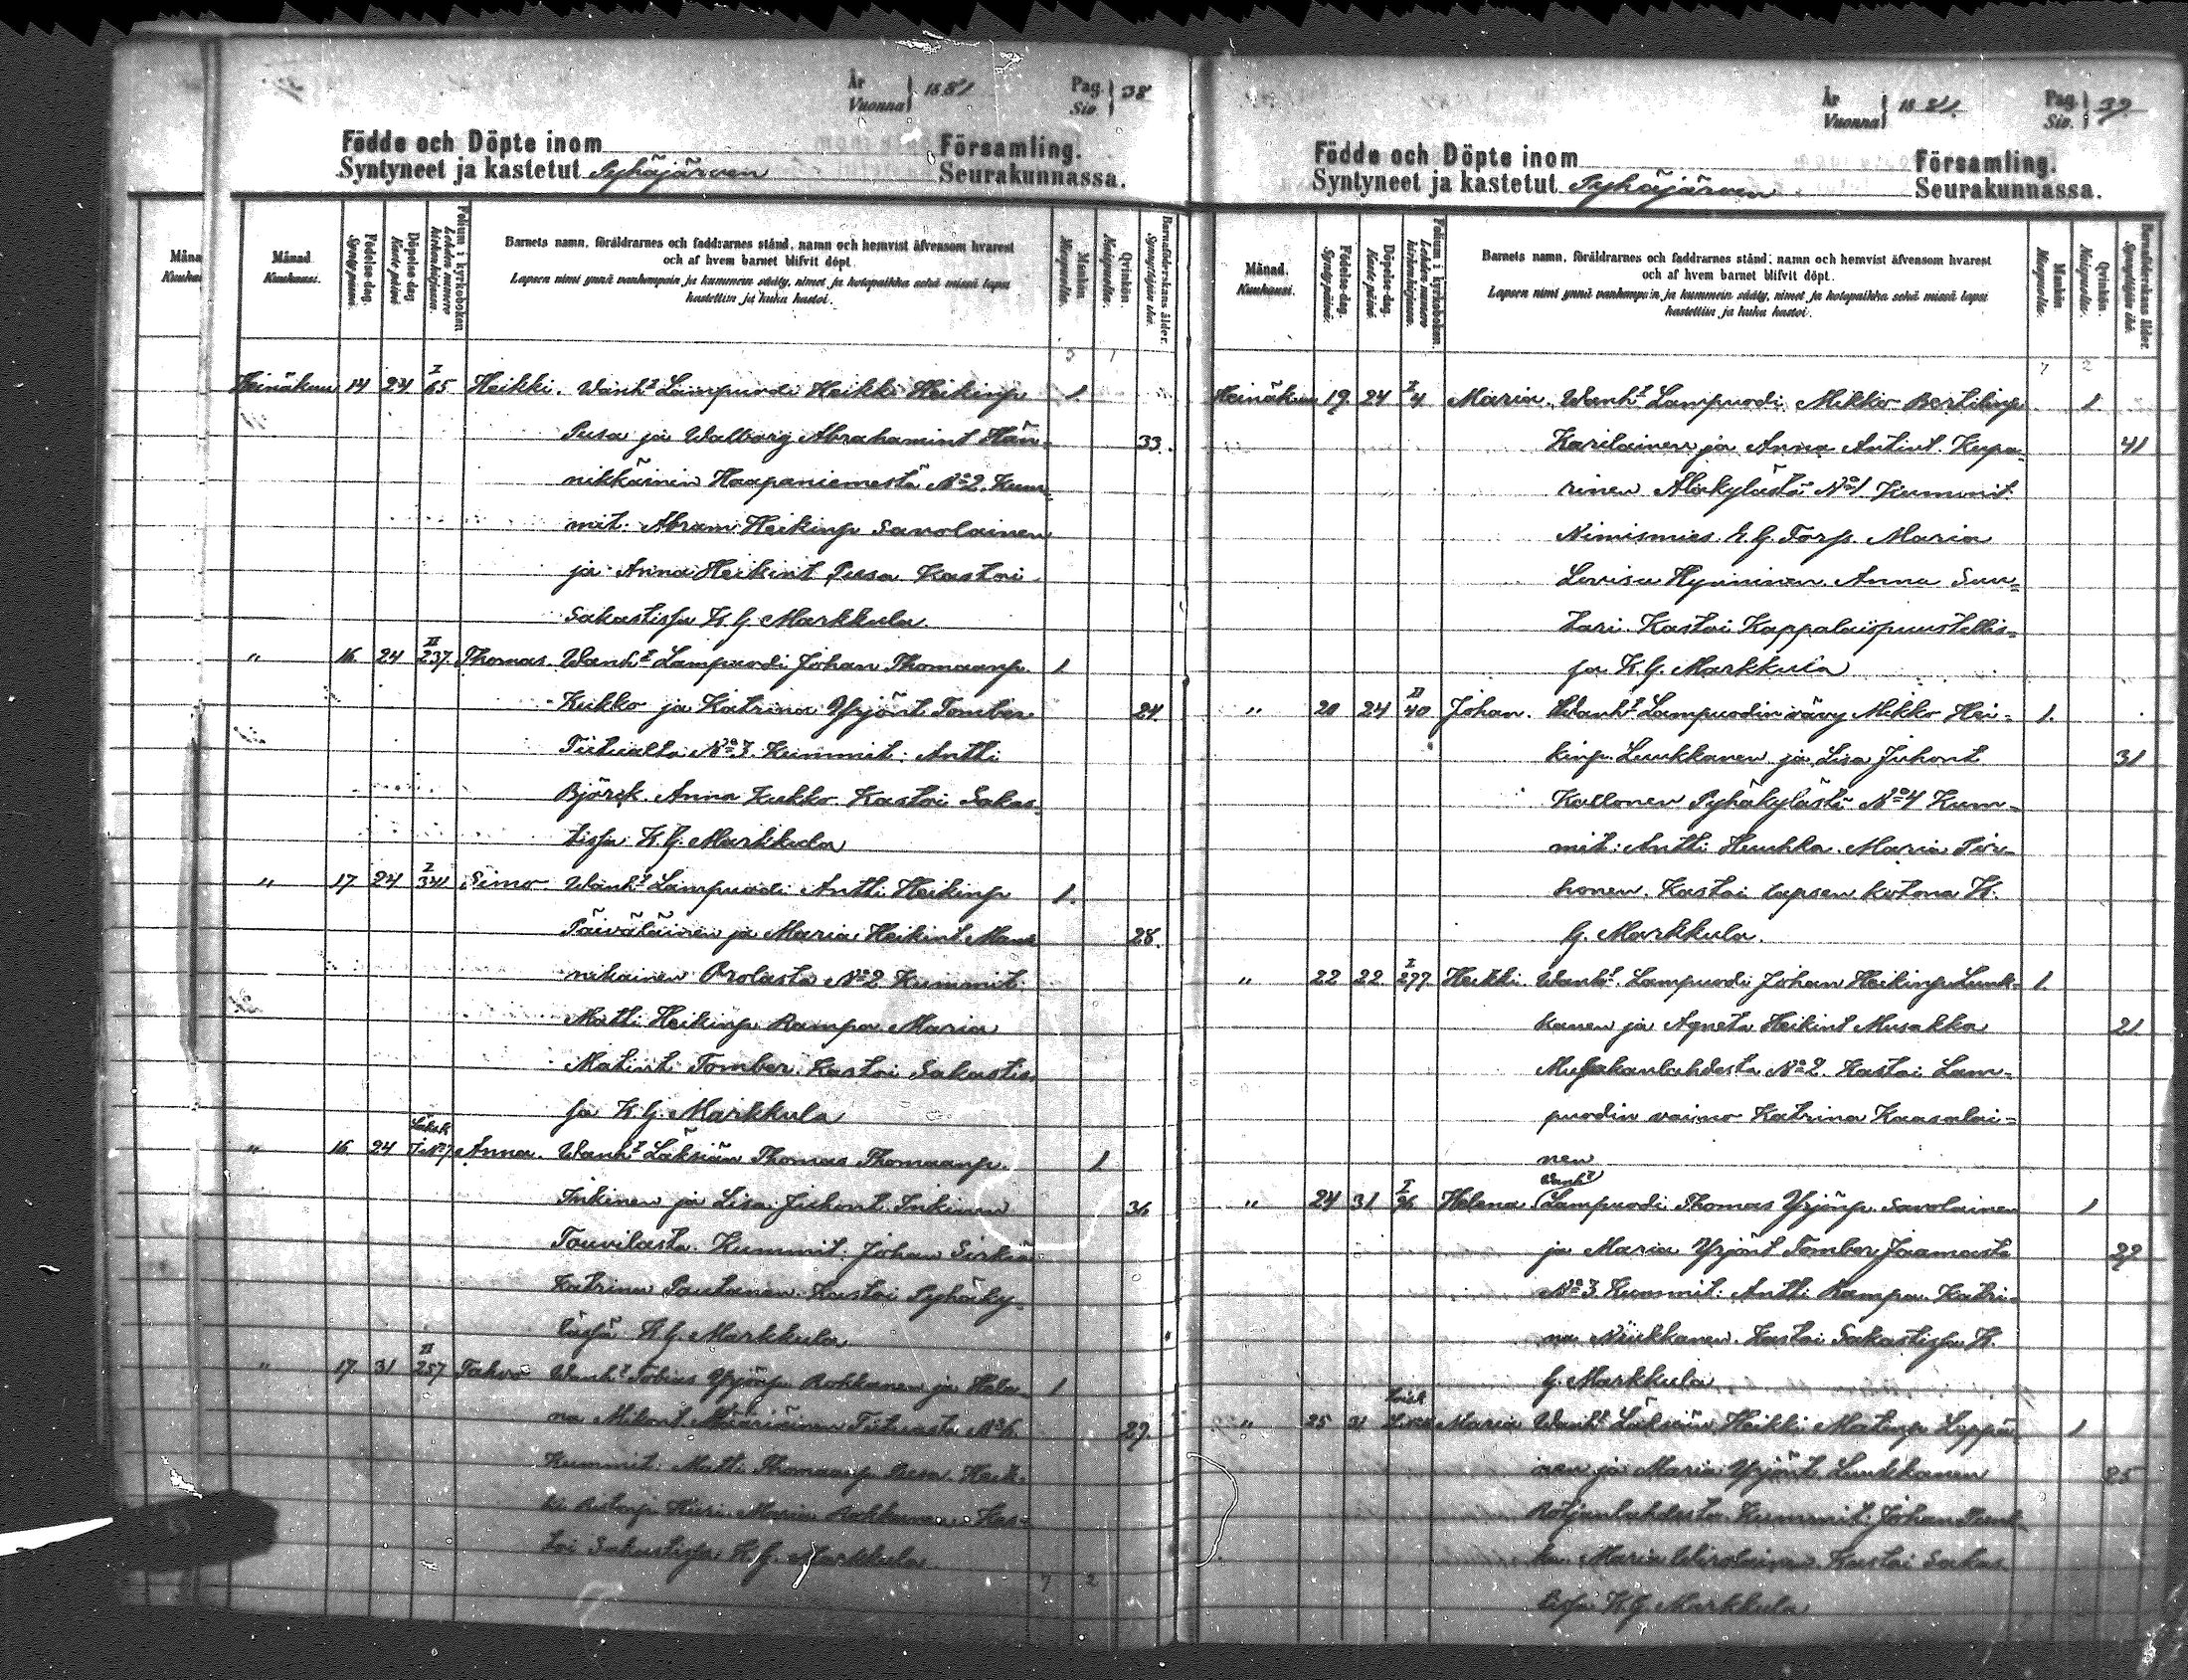 År
Vuonna 1881
Pag.
Siv. 38
Födde och Döpte inom Församling.
Syntyneet ja kastetut Pyhäjärven Seurakunnassa.
Månad.
Kuukausi.
Födelse-dag.
Synty-päivä.
Döpelse-dag.
Kaste-päivä.
Folium i kyrkoboken.
Lehden numero kirkonkirjassa.
Barnets namn, föräldrarnes och faddrarnes stånd, namn och hemvist äfvensom hvarest
och af hvem barnet blifvit döpt.
Lapsen nimi ynnä vanhempain ja kummein sääty, nimet ja kotopaikka sekä missä lapsi
kastettiin ja kuka kastoi.
Mankön
Miespuolta.
Qvinkön.
Naispuolta.
Barnaföderskans ålder.
Synnyttäjän ikä.
Heinäkuu 14 24 I 65 Heikki. Wanht Lampuodi Heikki Heikinp 1
Pusa ja Walborg Abrahamint Hän- 33.
nikkäinen Haapaniemestä No 2. Kum-
mit: Abram Heikinp Savolainen
ja Anna Heikint Pusa Kastoi
Sakastissa K. G. Markkula.
" 16 24 II 237. Thomas. Wanht Lampuodi Johan Thomaanp. 1
Kukko ja Katrina Yrjönt Tomber 24
No 3. Kummit: Antti
Björck. Anna Kukko. Kastoi Sakas-
tissa K. G. Markkula
" 17 24 I 341 Simo Wanht Lampuodi Antti Heikinp 1.
Päiväläinen ja Maria Heikint Man- 28.
nikainen No 2 Kummit:
Matti Heikinp Rampa Maria
Matint Tomber. Kastoi Sakastis-
sa K. G. Markkula
" 16 24 Anna. Wanht Läksiän Thomas Thomaanp. 1
Inkinen ja Lisa Juhont Inkinen 36
Touvilasta. Kummit: Johan Sirkiä
Katrina Pautanen. Kastoi Pyhäky-
lässä K. G. Markkula
" 17. 31 II 257 Tahvo Wanht Tobias Yrjönp Rokkanen ja Hele- 1
na Mikont Määriäinen 29.
Kummit: Matti Thomaanp Pusa. Heik-
ki Maria Rokkanen. Kas-
toi Sakastissa K. G. Markkula
7 2
År
Vuonna 1881.
Pag.
Siv. 39
Födde och Döpte inom Församling.
Syntyneet ja kastetut Pyhäjärven Seurakunnassa.
Månad.
Kuukausi.
Födelse-dag.
Synty-päivä.
Döpelse-dag.
Kaste-päivä.
Folium i kyrkoboken.
Lehden numero kirkonkirjassa.
Barnets namn, föräldrarnes och faddrarnes stånd, namn och hemvist äfvensom hvarest
och af hvem barnet blifvit döpt.
Lapsen nimi ynnä vanhempain ja kummein sääty, nimet ja kotopaikka sekä missä lapsi
kastettiin ja kuka kastoi.
Mankön
Miespuolta.
Qvinkön.
Naispuolta.
Barnaföderskans ålder.
Synnyttäjän ikä.
7 2
Heinäkuu 19. 24 I 4 Maria. Wanht Lampuodi Mikko Bertilinp 1
Karilainen ja Anna Antint. Kupa- 41
rinen Alakylästä No 1 Kummit
Nimismies Maria
Lovisa Hynninen. Anna Sun-
tari. Kastoi Kappalaispuustellis-
sa K. G. Markkula
" 20 24 II 40 Johan. Wanht Lampuodin vävy Mikko Hei- 1.
kinp. Luukkanen ja Lisa Juhont 31
Kallonen Pyhäkylästä No 4 Kum-
mit: Antti Huuhka. Maria Tir-
honen. Kastoi lapsen kotona K.
G. Markkula.
" 22 22 I 277. Heikki. Wanht. Lampuodi Johan Heikinp Luuk- 1.
kanen ja Agneta Heikint Musakka 21
Musakanlahdesta No 2. Kastoi Lam-
puodin vaimo Katrina Kaasalai-
nen
Wanht
" 24 31 I 96 Helena Lampuodi Thomas Yrjönp. Savolainen 1
ja Maria Yrjönt Tomber Jaamasta 29
No 3. Kummit: Antti Rampa. Katri-
na Niukkanen. Kastoi Sakastissa K.
G. Markkula
" 25 31 Maria Wanht Läksiän Heikki Matinp Leppä- 1
nen ja Maria Yrjönt Luukkanen 25
Kummit: Johan
Maria Wirolainen. Kastoi Sakas-
tissa K. G. Markkula